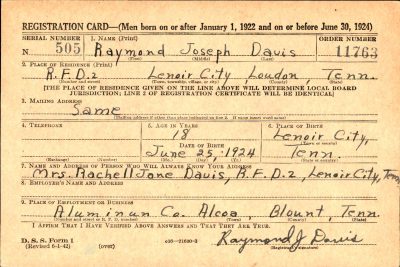 REGISTRATION CARD—(Men born on or after January 1, 1922 and on or before June 30, 1924)
SERIAL NUMBER 1. NAME (Print) ORDER NUMBER
N 505 Raymond Joseph Davis 11763
(First) (Middle) (Last)
2. PLACE OF RESIDENCE (Print)
R.F.D.2 Lenoir City Loudon, Tenn.
(Number and street) (Town, township, village, or city) (County) (State)
[THE PLACE OF RESIDENCE GIVEN ON THE LINE ABOVE WILL DETERMINE LOCAL BOARD
JURISDICTION; LINE 2 OF REGISTRATION CERTIFICATE WILL BE IDENTICAL]
3. MAILING ADDRESS
Same
[Mailing address if other than place indicated on line 2. If same insert word same]
4. TELEPHONE 5. AGE IN YEARS 6. PLACE OF BIRTH
18 Lenoir City,
DATE OF BIRTH (Town or county)
June 25, 1924 Tenn
(Exchange) (Number) (Mo.) (Day) (Yr.) (State or country)
7. NAME AND ADDRESS OF PERSON WHO WILL ALWAYS KNOW YOUR ADDRESS
Mrs. Rachell Jane Davis, R.F.D.2, Lenoir City, Tenn
8. EMPLOYER'S NAME AND ADDRESS
9. PLACE OF EMPLOYMENT OR BUSINESS
Aluminum Co. Alcoa, Blount, Tenn.
(Number and street or R. F. D. number) (Town) (County) (State)
I AFFIRM THAT I HAVE VERIFIED ABOVE ANSWERS AND THAT THEY ARE TRUE.
D. S. S. Form 1
(Revised 6-1-42) (over) 16—21630-2 Raymond J Davis